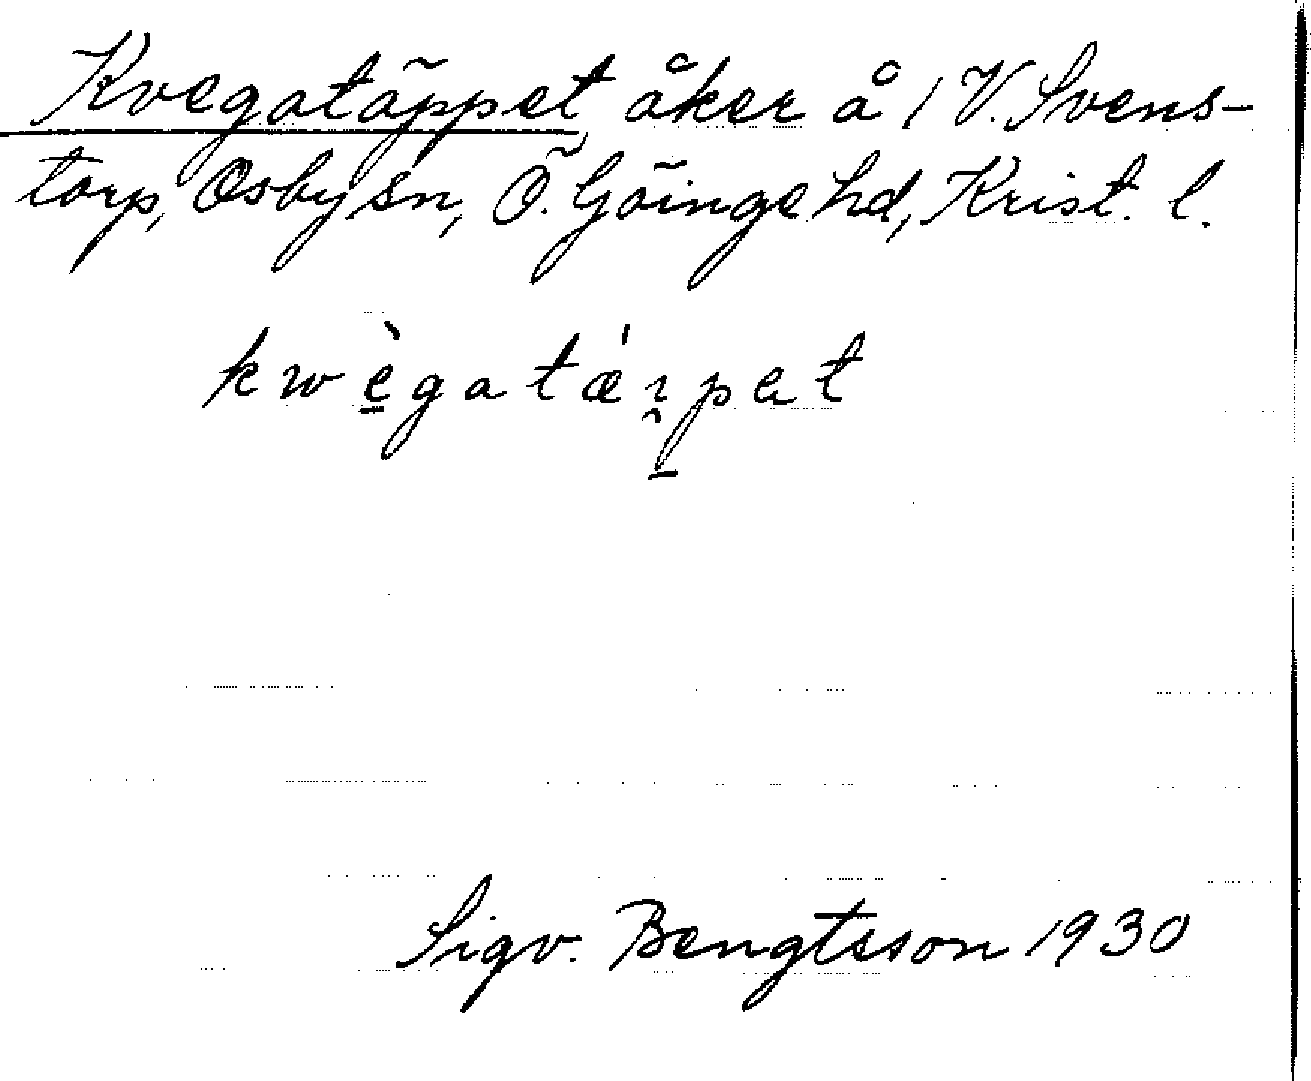 Kvegatäppet åker å 1 V. Svens-
torp, Osby sn, Ö. Göinge hd, Krist. l.
kwè̠gatǽı̯p̠ət
Sigv. Bengtsson 1930